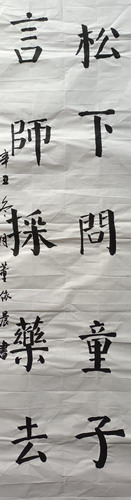 松下問童子
言師採藥去
辛丑冬月董依晨書